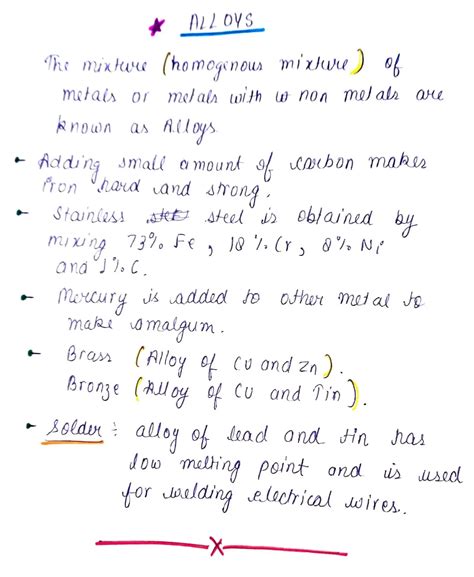 ALLOYS
The mixture (homogenous mixture) of
metals or metals with non metals are
known as Alloys.
Adding small amount of carbon makes
iron hard and strong.
Stainless steel is obtained by
mixing 73% Fe, 18% Cr, 8% Ni
and 1% C.
Mercury is added to other metal to
make amalgum.
Brass (Alloy of Cu and Zn).
Bronze (Alloy of Cu and Tin).
Solder : alloy of lead and tin has
low melting point and is used
for welding electrical wires.